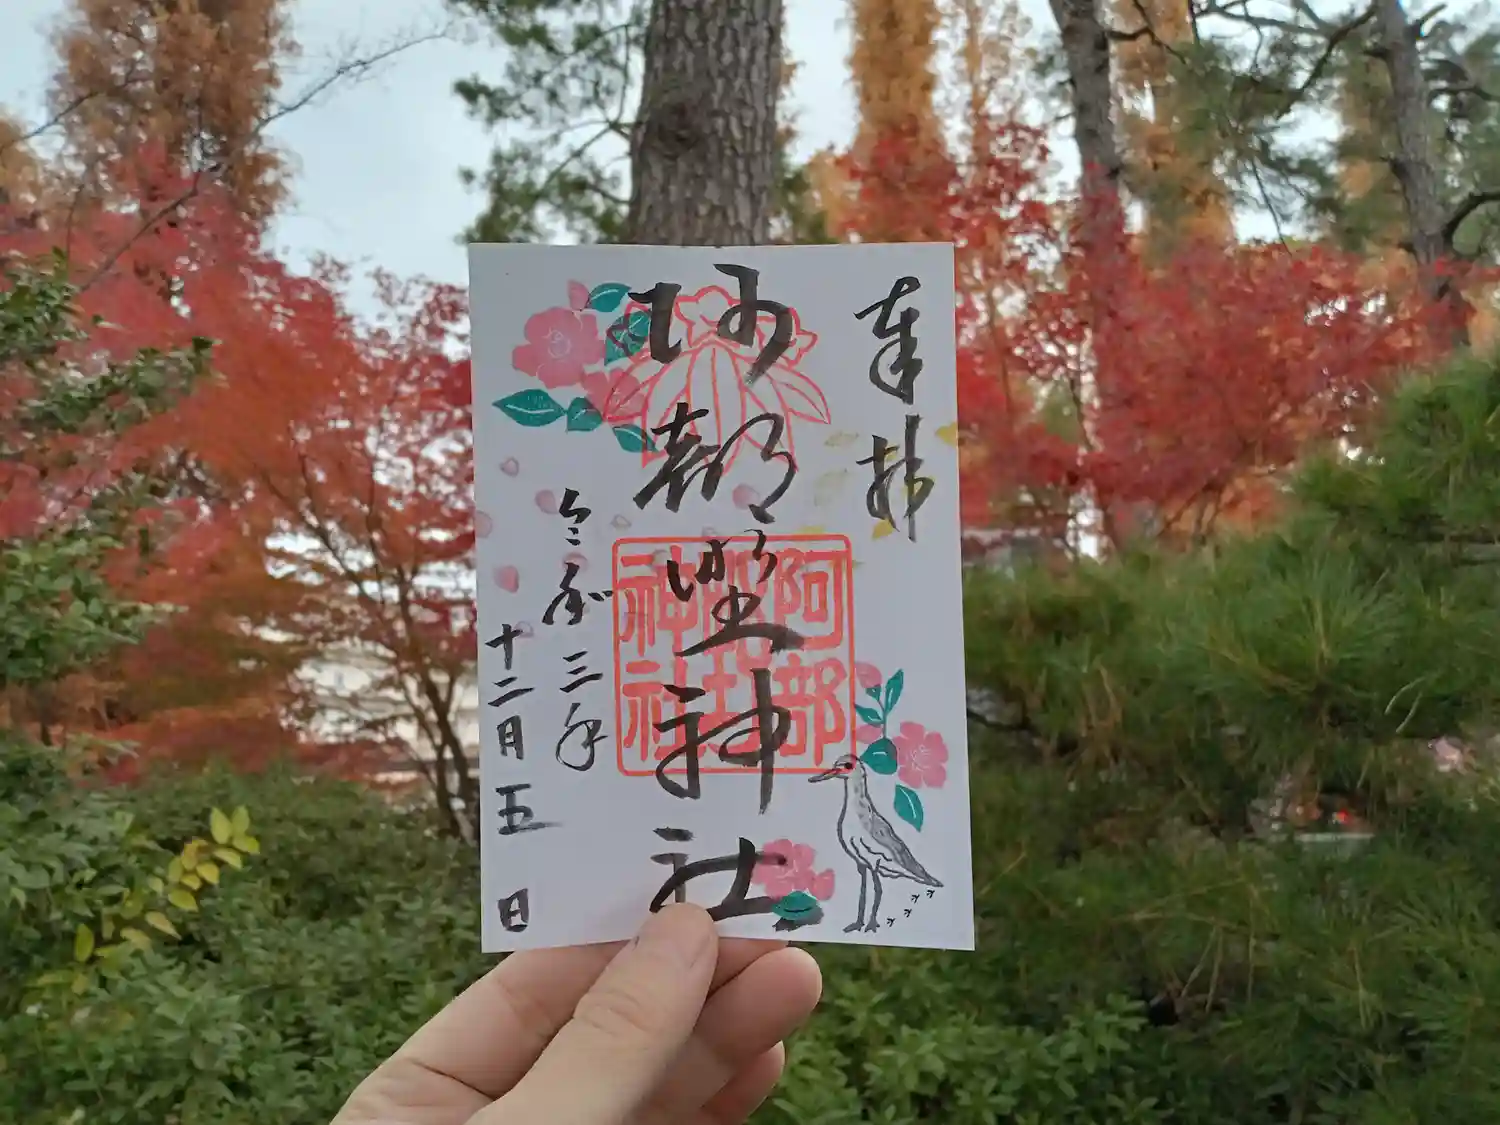 奉拝
阿部野神社
阿部
神社
令和三年
十二月五日